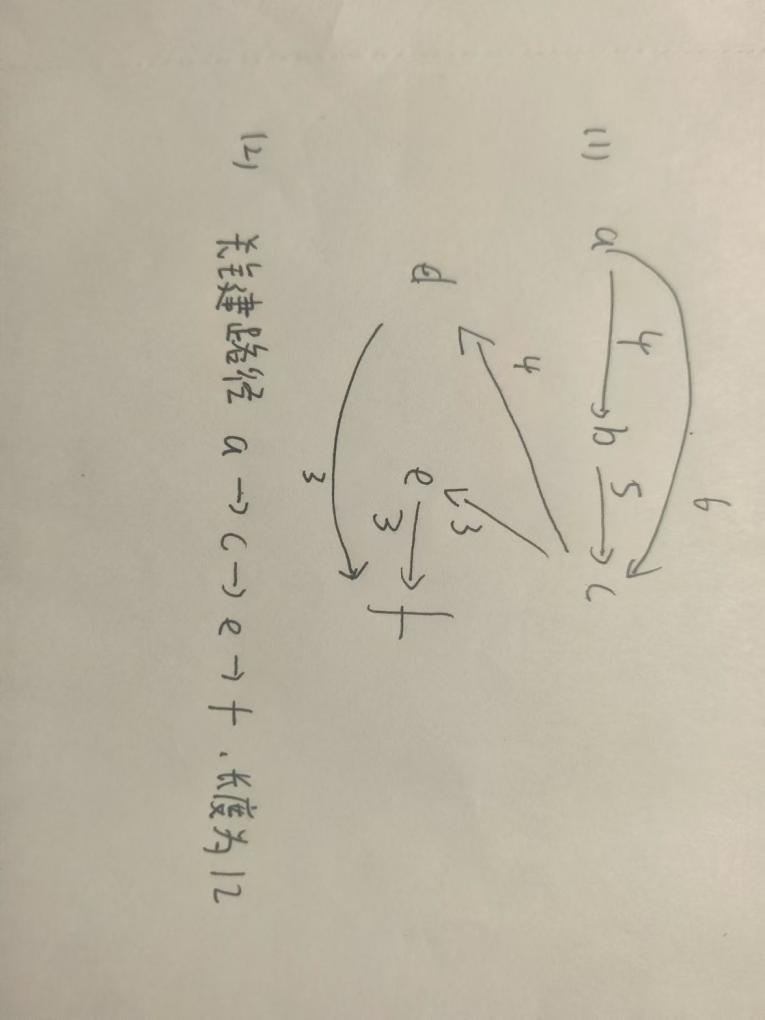 (1) a 4 b 5 c 6
d 4 e 3 3 f 3
(2) 关键路径 a→c→e→f.长度为12